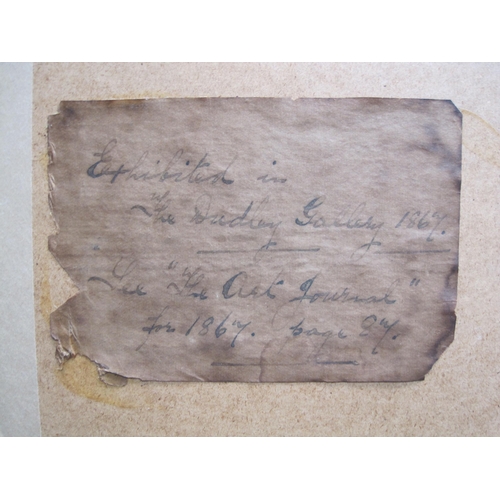 Exhibited in
The Dudley Gallery 1867.
See "The Art Journal"
for 1867. page 87.